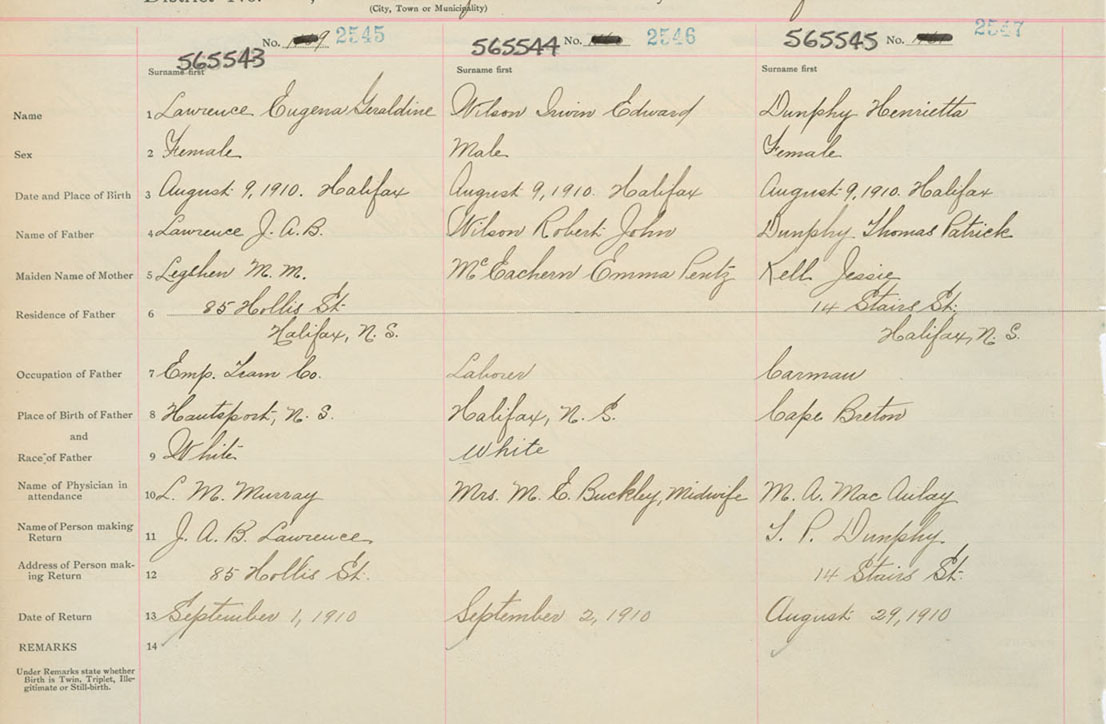 (City, Town or Municipality)
565543 No. 2545 565544 No. 2546 565545 No. 2547
Surname first Surname first Surname first
Name 1 Lawrence Eugena Geraldine Wilson Irwin Edward Dunphy Henrietta
Sex 2 Female Male Female
Date and Place of Birth 3 August 9, 1910. Halifax August 9, 1910. Halifax August 9, 1910. Halifax
Name of Father 4 Lawrence J. A. B. Wilson Robert John Dunphy Thomas Patrick
Maiden Name of Mother 5 M. M. McEachern Emma Pentz Kell Jessie
Residence of Father 6 85 Hollis St. 14 Stairs St.
Halifax, N. S. Halifax, N. S.
Occupation of Father 7 Emp. Tram Co. Laborer Carman
Place of Birth of Father 8 Hantsport, N. S. Halifax, N. S. Cape Breton
and
Race of Father 9 White White
Name of Physician in
attendance 10 L. M. Murray Mrs. M. E. Buckley, Midwife M. A. MacAulay
Name of Person making
Return 11 J. A. B. Lawrence T. P. Dunphy
Address of Person mak-
ing Return 12 85 Hollis St. 14 Stairs St.
Date of Return 13 September 1, 1910 September 2, 1910 August 29, 1910
REMARKS 14
Under Remarks state whether
Birth is Twin, Triplet, Ille-
gitimate or Still-birth.